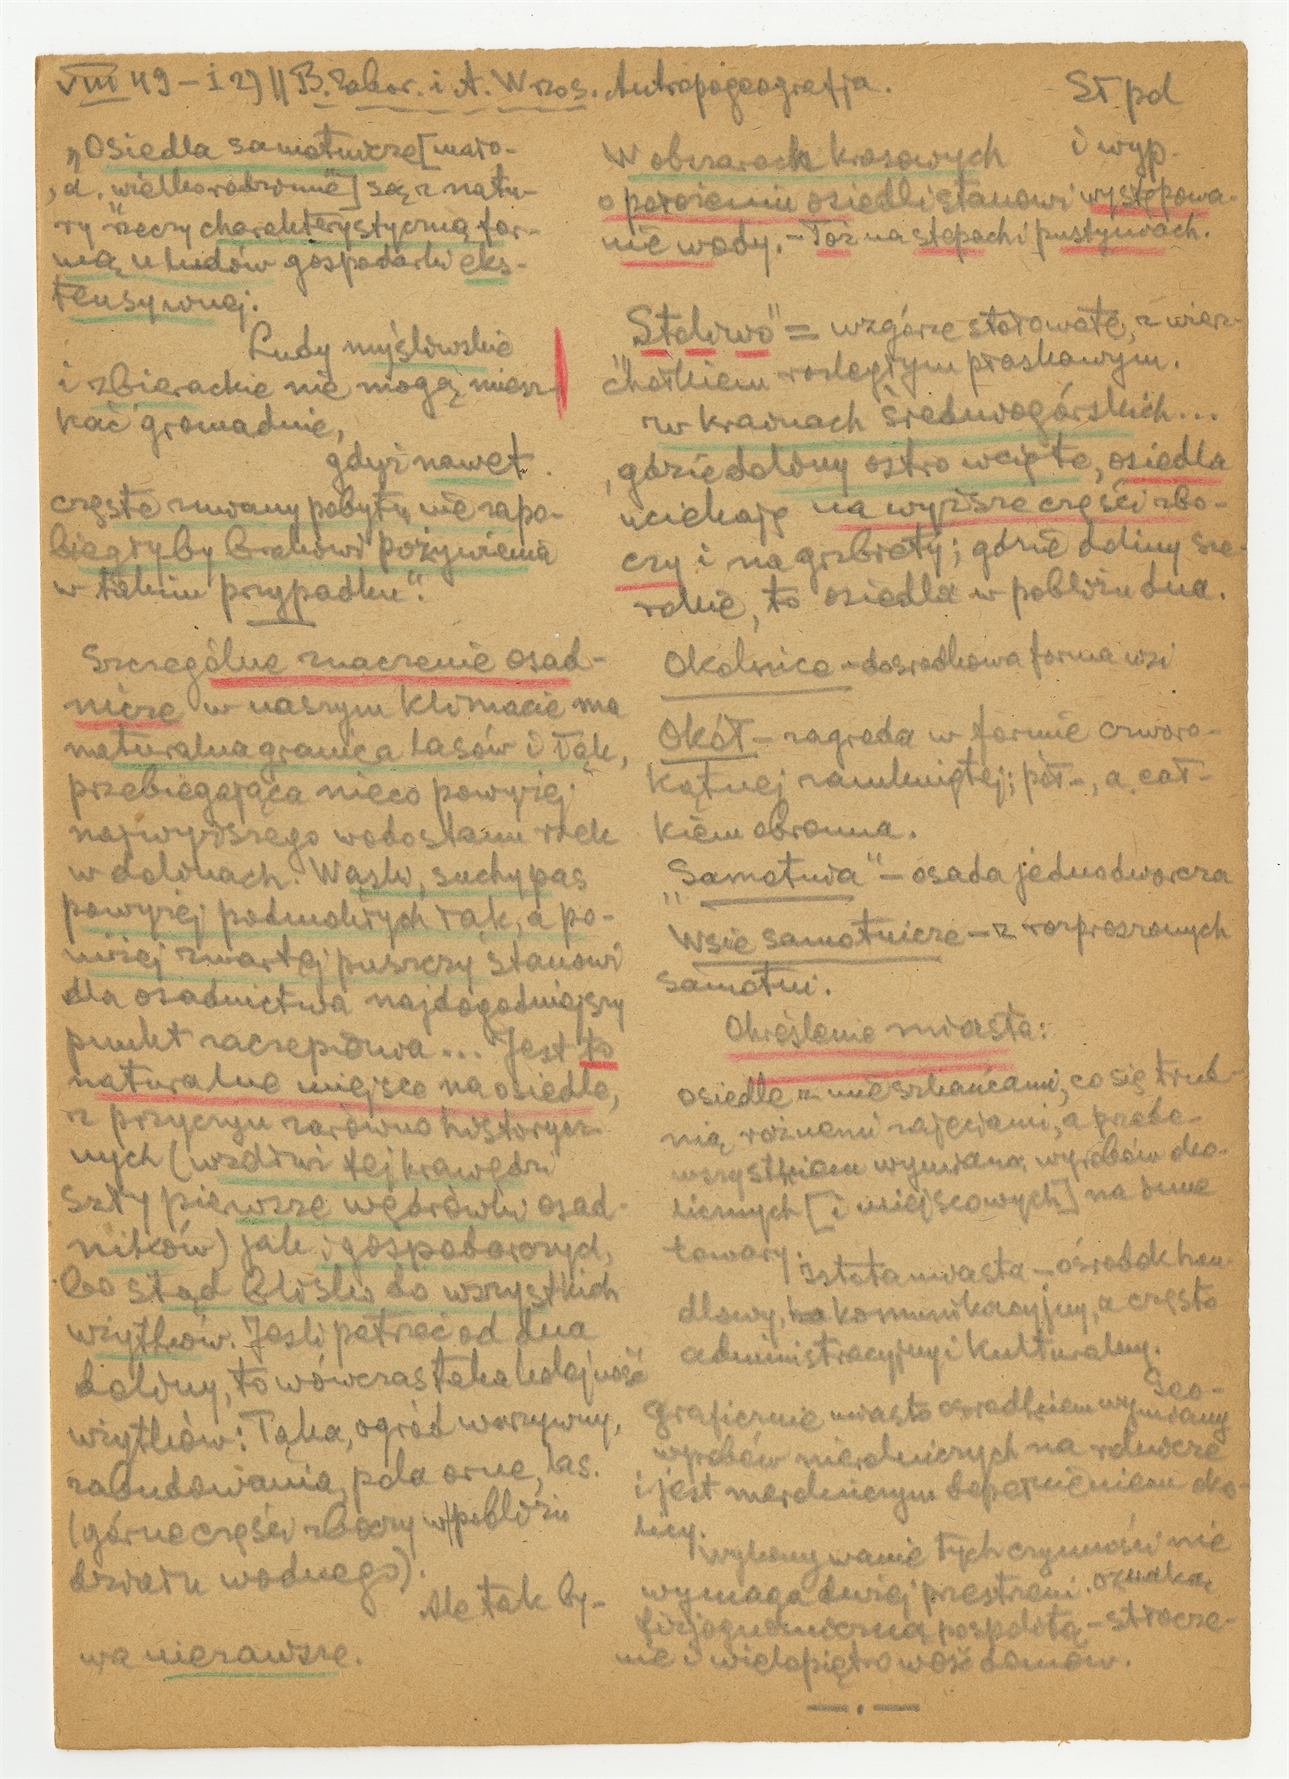 VIII 49 – i 2) || B. Zabor. i A. Wrzos. Antropogeografja.
St pd
i wyp.
„Osiedla samotnicze [mało-
, a. wielkorodzinne"] są z natu-
ry "rzeczy charakterystyczną for-
mą u ludów gospodarki eks-
tensywnej.
Ludy myśliwskie
i zbierackie nie mogą miesz-
kać gromadnie,
gdyż nawet
częste zmiany pobytu nie zapo-
biegłyby brakowi pożywienia
w takim przypadku".
Szczególne znaczenie osad-
nicze w naszym klimacie ma
naturalna granica lasów i łąk,
przebiegająca nieco powyżej
najwyższego wodostanu rzek
w dolinach. Wąski, suchy pas
powyżej podmokłych łąk, a po-
niżej zwartej puszczy stanowi
dla osadnictwa najdogodniejszy
punkt zaczepienia ... Jest to
naturalne miejsce na osiedle,
z przyczyn zarówno historycz-
nych (wzdłuż tej krawędzi
szły pierwsze wędrówki osad-
ników) jak i gospodarczych,
bo stąd blisko do wszystkich
użytków. Jeśli patrzeć od dna
doliny, to wówczas taka kolejność
użytków: Łąka, ogród warzywny,
zabudowania, pola orne, las.
(górne części zboczy w pobliżu
działu wodnego).
Ale tak by-
wa nie zawsze.
W obszarach krasowych
o położeniu osiedli stanowi występowa-
nie wody. – Toż na stepach i pustyniach.
„Stoliwo" = wzgórze stołowate, z wierz-
chołkiem rozległym płaskawym.
w krainach średniogórskich...
, gdzie doliny ostro wcięte, osiedla
uciekają na wyższe części zbo-
czy i na grzbiety; gdzie doliny sze-
rokie, to osiedla w pobliżu dna.
Okolnica – dośrodkowa forma wsi
Okół – zagroda w formie czworo-
kątnej zamkniętej; pół-, a cał-
kiem obronna.
„Samotnia" – osada jednodworcza
Wsie samotnicze – z rozproszonych
samotni.
Określenie miasta:
osiedle z mieszkańcami, co się trud-
nią różnemi zajęciami, a przede-
wszystkiem wymianą wyrobów oko-
licznych [i miejscowych] na inne
towary.
Istota miasta – ośrodek han-
dlowy, komunikacyjny, a często
administracyjny i kulturalny.
Geo-
graficznie miasto ośrodkiem wymiany
wyrobów nierolniczych na rolnicze
i jest nierolniczym dopełnieniem oko-
licy.
Wykonywanie tych czynności nie
wymaga dużej przestrzeni. Oznaką
fizjognomiczną pospolitą – stłocze-
nie i wielopiętrowość domów.
— . —